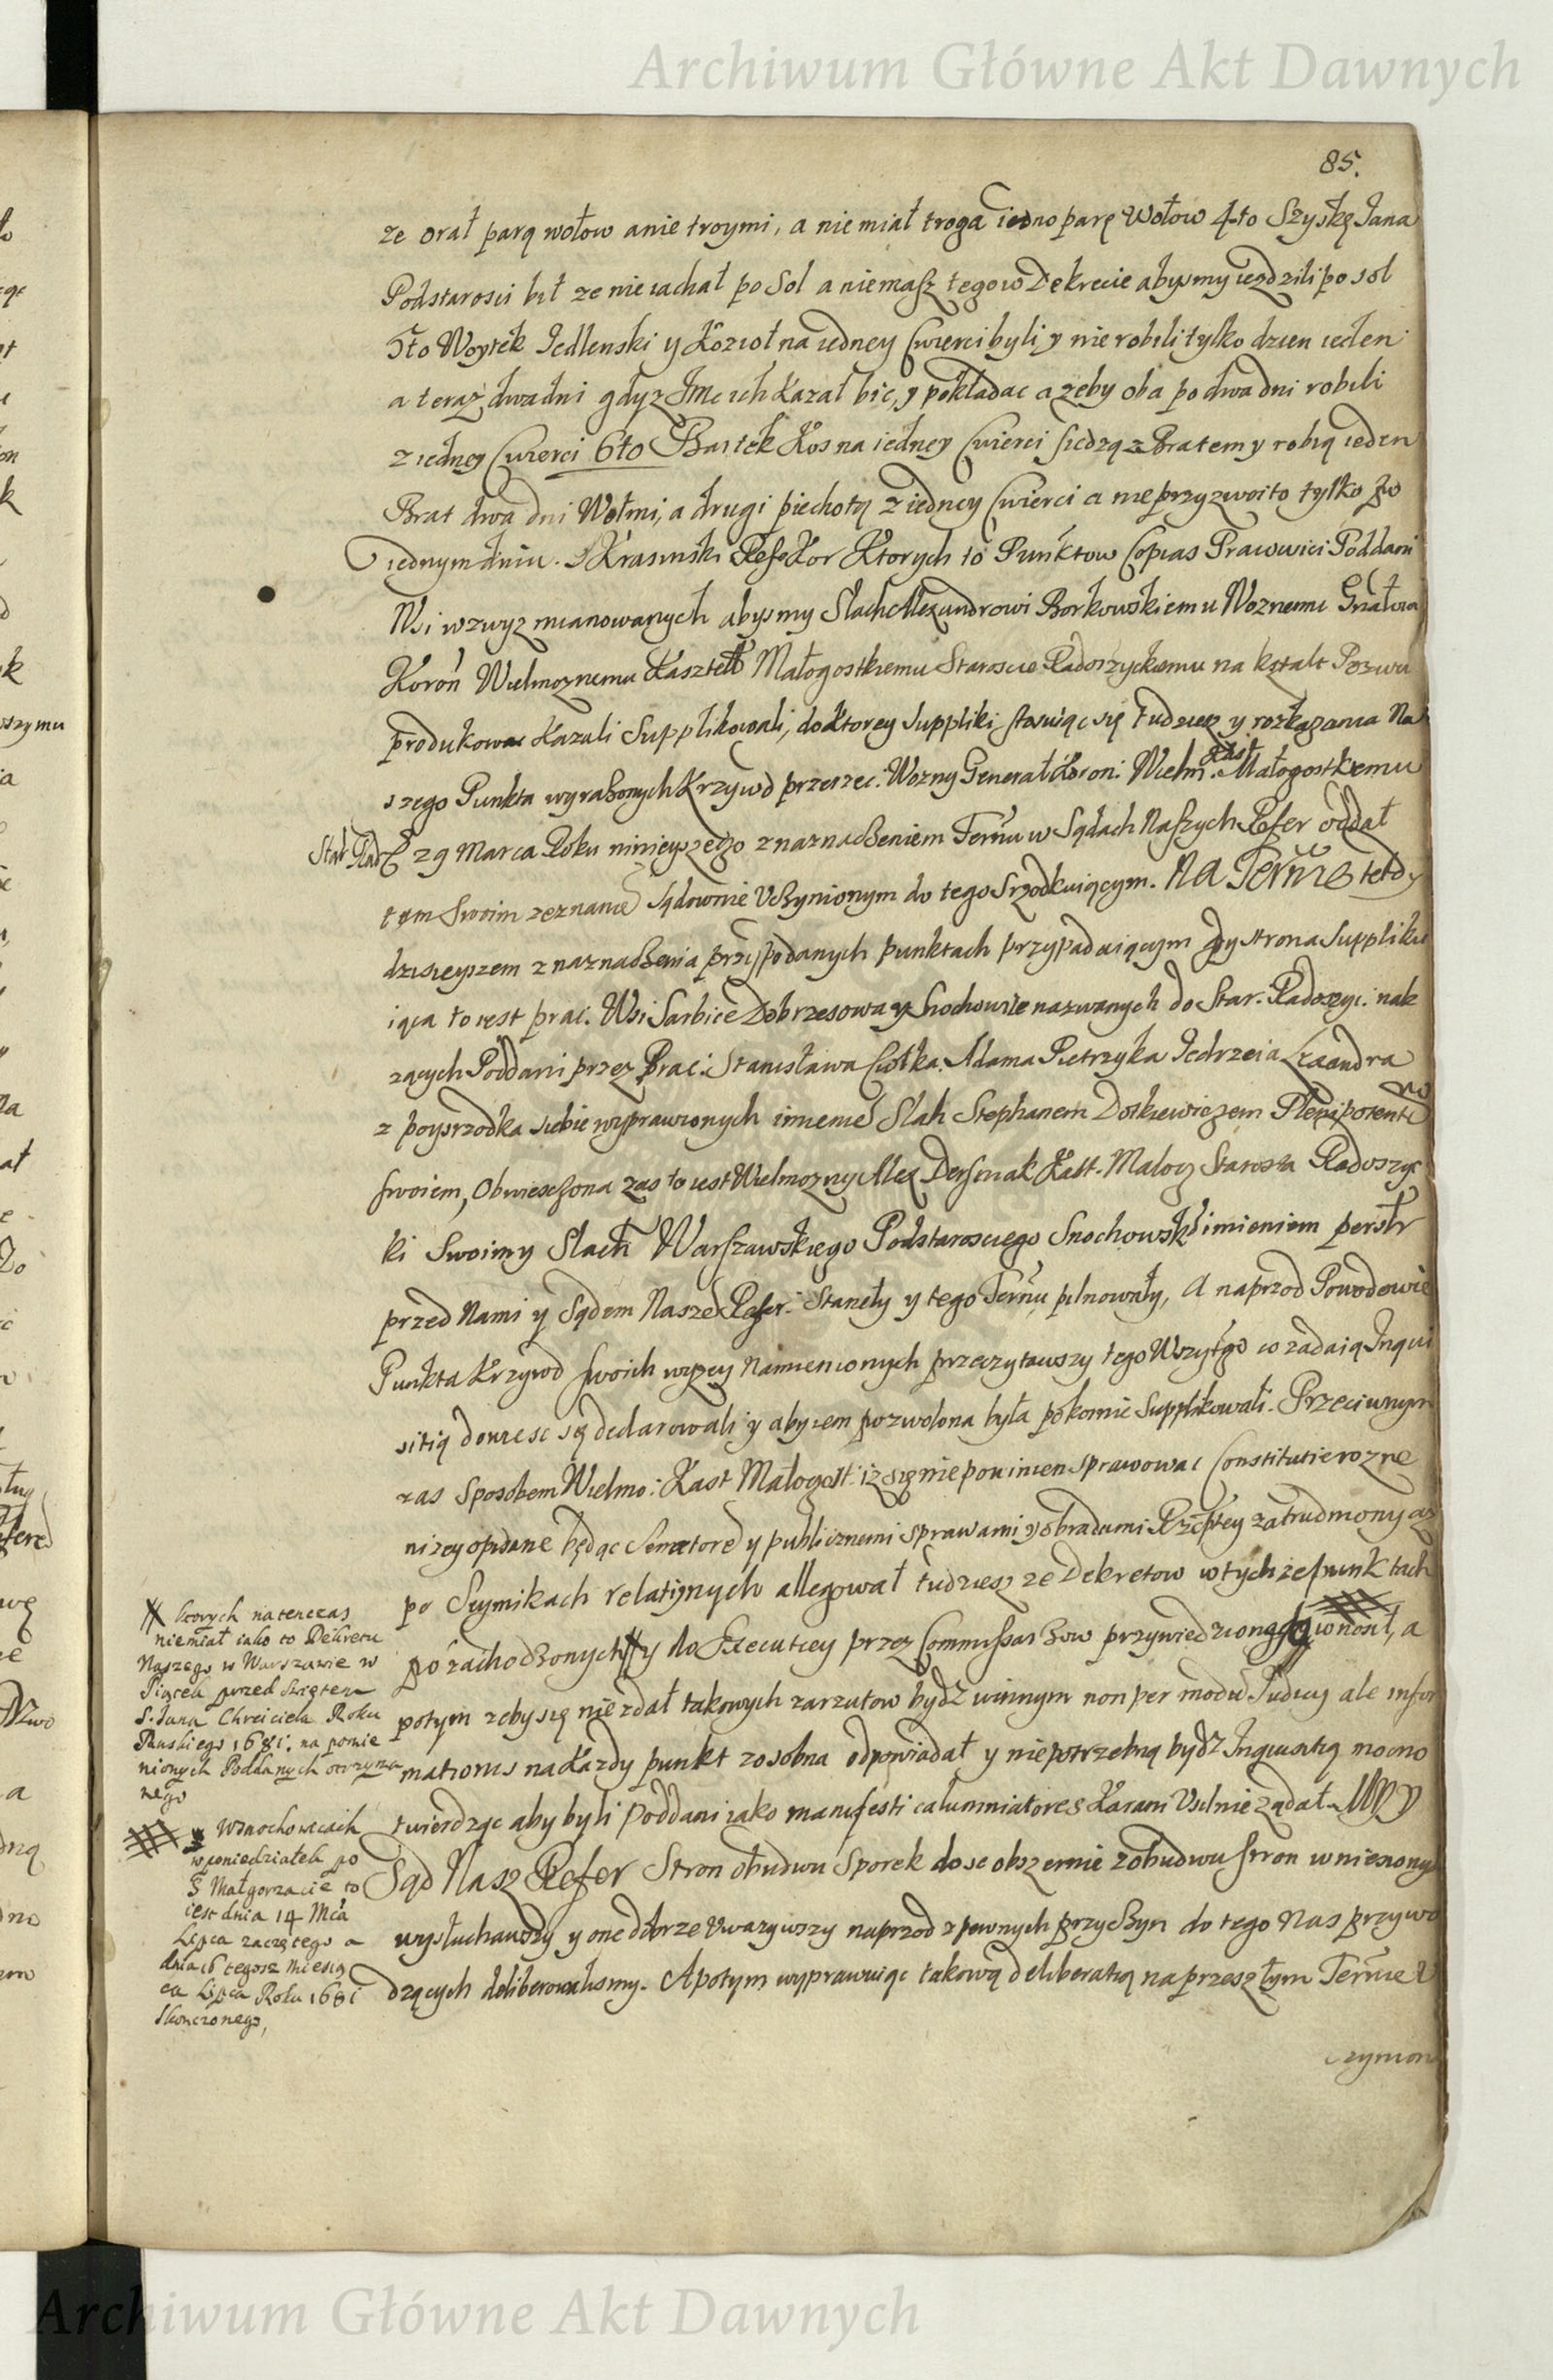 Archiwum Główne Akt Dawnych
85.
ze orał parą wołow a nie troymi, a nie miał troga iedno parę Wołow 4to Szyskę Jana
Podstarosci bił ze nie iachał po Sol a niemasz tego w Dekrecie abysmy iezdzili po sol
5to Woytek Jedlenski y Kozioł na iedney Cwierci byli y nie robili tylko dzien ieden
a teraz dwa dni gdyz Jmc ich kazał bic, y pokładac a zeby oba po dwa dni robili
z iedney Cwierci 6to Bartek Kos na iedney Cwierci siedzą z Bratem y robią ieden
Brat dwa dni Wołmi, a drugi piechotą z iedney Cwierci a nie przyzwoito tylko po
iednym dniu. Krasinski Refe Kor Ktorych to Punktow Copias Pracowici Poddani
Wsi wzwyz mianowanych abysmy Slach Alexandrowi Borkowskiemu Woznemu Gnałowi
Koron Wielmoznemu Kasztell Małogostkiemu Staroscie Radoszyckiemu na kstalt Pozwu
produkowac kazali Supplikowali, do ktorey Suppliki stosuiąc się tudziez y rozkazania Na
szego Punkta wyrazonych Krzywd przerzec. Wozny Generał Koron. Wielm. Kast Małogostkiemu
Star Rad 29 Marca Roku ninieyszego z naznaczeniem Termu w Sądach Naszych Refer oddał
tem Swoim zeznanie sądownie Uczynionym do tego srzodkuiącym. Na Termie tedy
dzisieyszem z naznaczenia przy podanych punktach przypadaiącym gdy strona Suppliku
iąca to iest prac. Wsi Sarbice Dobrzesowa y Snochowice nazwanych do Star. Radoszyc. nale
zących Poddani przez Prac. Stanisława Ciołka Adama Pietrzyka Jedrzeia
z posrzodka siebie wyprawionych imieniem Slah Stephanem Doskiewiczem Plenipotentem
swoiem, Obwieszona zas to iest Wielmozny Alex Kast. Malog Starosta Radoszyc
ki Swoimy Slach Warszawskiego Podstarosciego Snochowski imieniem
przed Nami y Sądem Naszem Refer. Staneły y tego Termu pilnowały, A naprzod Powodowie
Punkta Krzywd swoich wyzey namienionych przeczytawszy tego Wszytgo co zadaią Inqui
sitią dowiesc się declarowali y aby iem pozwolona była pokornie Supplikowali. Przeciwnym
zas Sposobem Wielmo: Kast Małogost: iz się nie powinien sprawowac Constitutie rozne
nizey opisane będąc Senatorem y publicznemi sprawami y obradami Rzeptey zatrudniony az
po Seymikach relatijnych allegował tudziesz ze Dekretow w tychze punktach
po zachodzonych y do Executiey przez Commissarzow przywiedzionego wnosił, a
potym zeby się nie zdał takowych zarzutow bydz winnym non per modum Judicij ale infor
mationis na kazdy punkt zosobna odpowiadał y niepotrzebną bydz Inquisitią mocno
twierdząc aby byli Poddani iako manifesti calumniatores Karani Usilnie ządał. My y
Sąd Nasz Refer Stron obudwu Sporek dose obszernie z obudwu stron wniesionych
wysłuchawszy y one dobrze Uwazywszy naprzod z pewnych przyczyn do tego Nas przywo
dzących deliberowalismy. A potym wyprawuiąc takową deliberatią na przeszłym Termie U
czymon
ktorych natenczas
niemiał iako to Dekretu
Naszego w Warszawie w
Piątek przed Swiętem
S. Jana Chrciciela Roku
Pańskiego 1681. na pomie
nionych Poddanych otrzyma
nego
w Snochowicach
w poniedziałek po
S Małgorzacie to
iest dnia 14 Mca
Lipca zaczętego a
dnia 16 tegosz miesią
ca Lipca Roku 1681
skonczonego,
Archiwum Główne Akt Dawnych